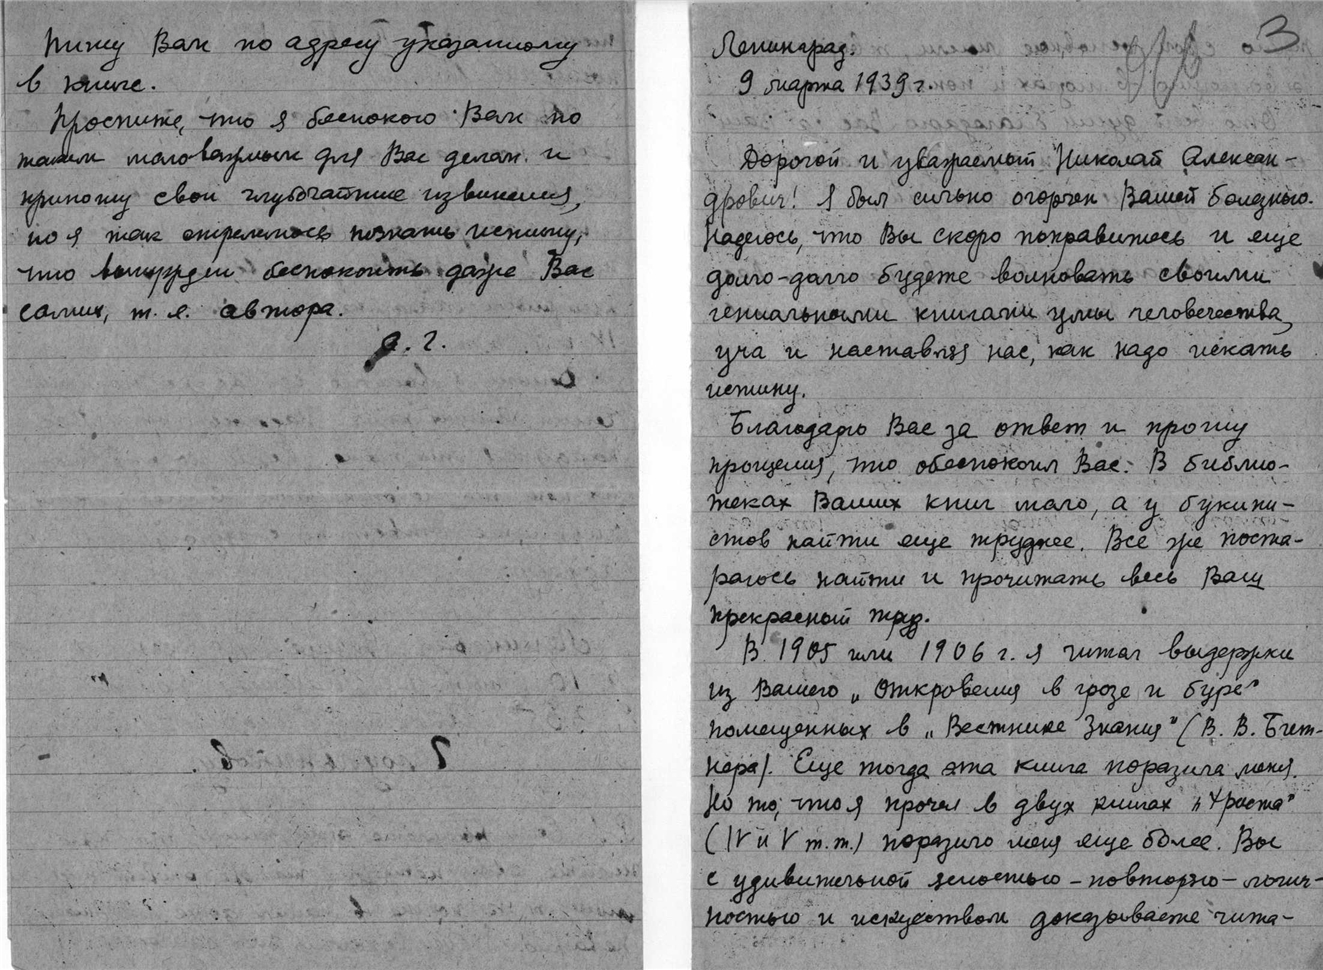 Пишу Вам по адресу указанному
в книге.
Простите, что я беспокою Вам по
таким маловажным для Вас делам и
приношу свои глубочайшие извинения,
но я так стремлюсь познать истину,
что вынужден беспокоить даже Вас
самих, т. я. автора.
а. г.
3
Ленинград.
9 марта 1939 г.
Дорогой и уважаемый Николай Алексан-
дрович! Я был сильно огорчен Вашей болезнью.
Надеюсь, что Вы скоро поправитесь и еще
долго-долго будете волновать своими
гениальными книгами умы человечества,
уча и наставляя нас, как надо искать
истину.
Благодарю Вас за ответ и прошу
прощения, что обеспокоил Вас. В библио-
теках Ваших книг мало, а у букини-
стов найти еще труднее. Все же поста-
раюсь найти и прочитать весь Ваш
прекрасный труд.
В 1905 или 1906 г. я читал выдержки
из Вашего „Откровения в грозе и буре"
помещенных в „Вестнике Знания" (В. В. Битт-
нера). Еще тогда эта книга поразила меня.
Но то, что я прочел в двух книгах „Христа"
(IV и V т.т.) поразило меня еще более. Вы
с удивительной ясностью – повторяю – логич-
ностью и искусством доказываете чита-